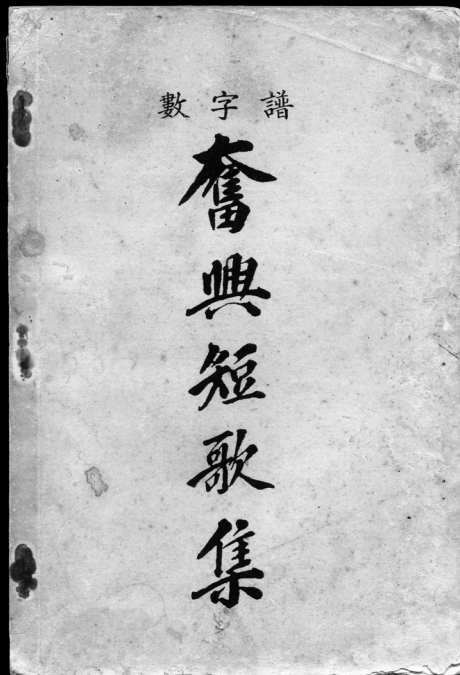 數字譜
奮興短歌集